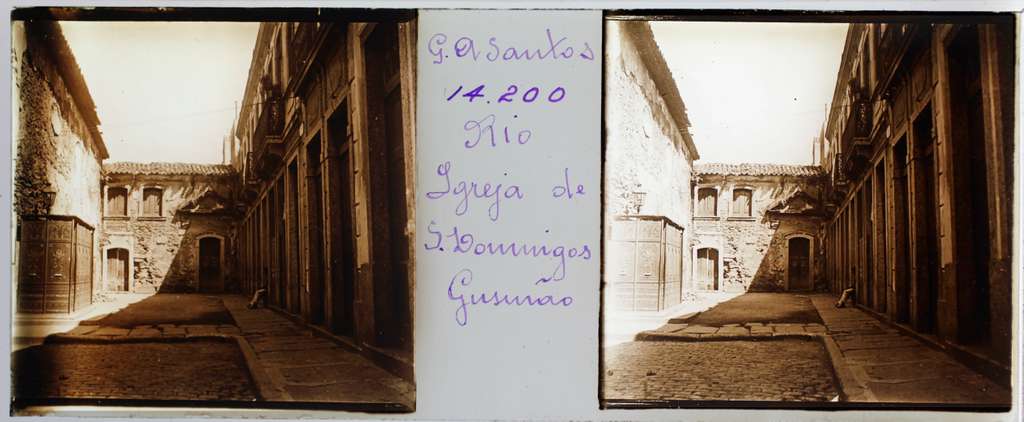 G. A Santos
14.200
Rio
Igreja de
S. Domingos
Gusmão